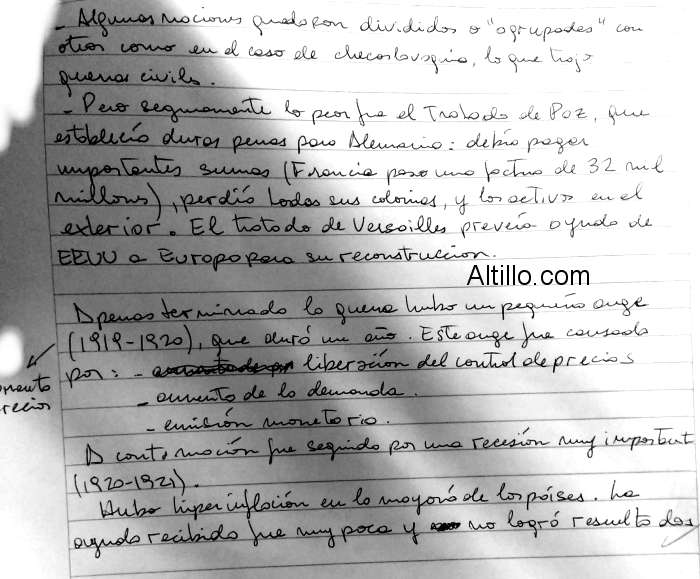 - Algunas naciones quedaron divididos o "agrupadas" con
otras como en el caso de checoslovaquia, lo que trajo
guerras civiles.
- Pero seguramente lo peor fue el Tratado de Paz, que
establecía duras penas para Alemania: debía pagar
importantes sumas (Francia paso una factura de 32 mil
millones), perdía todas sus colonias, y los activos en el
exterior. El tratado de Versailles preveía ayuda de
EEUU a Europa para su reconstruccion.
Altillo.com
Apenas terminado la guerra hubo un pequeño auge
(1919-1920), que duró un año. Este auge fue causado
por: - liberación del control de precios
- aumento de la demanda.
- emisión monetaria.
A continuación fue seguido por una recesión muy important
(1920-1921).
Hubo hiperinflación en la mayoría de los países. La
ayuda recibida fue muy poca y no logró resultados